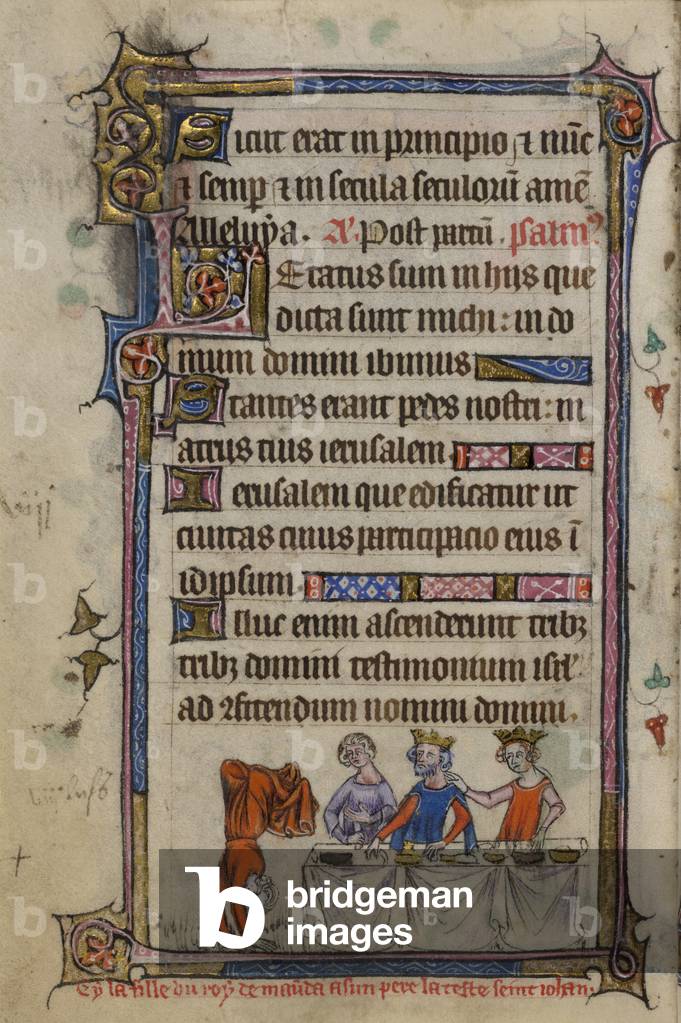 Sicut erat in principio ⁊ nūc
⁊ semp ⁊ in secula seculorū amē
Alleluya. A. Post partū. psalm⁹
Letatus sum in hijs que
dicta sunt michi: in do
mum domini ibimus
Stantes erant pedes nostri: in
atriis tuis ierusalem
Ierusalem que edificatur ut
ciuitas cuius participacio eius ī
idipsum
Illuc enim ascenderunt tribꝫ
tribꝫ domini testimonium isrl
ad ꝯfitendum nomini domini.
Cy la fille du roy demaūda a sun pere la teste seint iohan.
b bridgeman
images